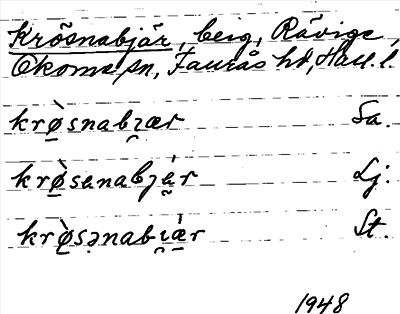 Krösnabjär, beig, Rävige,
Okome sn, Faurås hd, Hall. l.
krø̀snabɪ̯ær Sa.
krø̀sanabȷæ̀r Lj.
krø̀sənabɪ̯æ̀r St.
1948